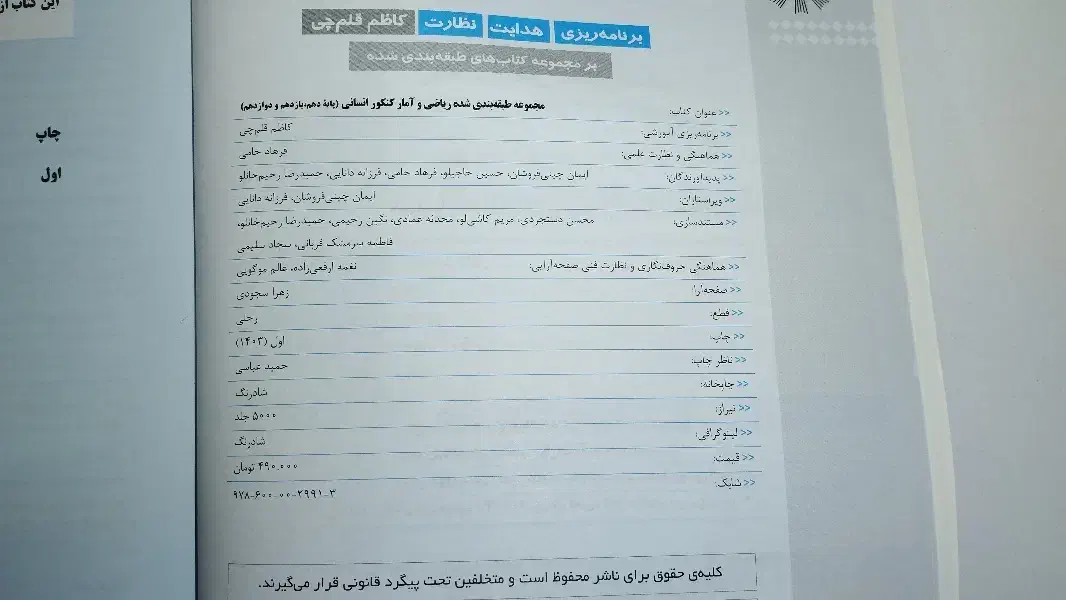 برنامه‌ریزی هدایت نظارت کاظم قلم‌چی
بر مجموعه کتاب‌های طبقه‌بندی شده
>> عنوان کتاب: مجموعه طبقه‌بندی شده ریاضی و آمار کنکور انسانی (پایهٔ دهم، یازدهم و دوازدهم)
>> برنامه‌ریزی آموزشی: کاظم قلم‌چی
>> هماهنگی و نظارت علمی: فرهاد حامی
>> پدیدآورندگان: ایمان چینی‌فروشان، حسین حاجیلو، فرهاد حامی، فرزانه دانایی، حمیدرضا رحیم‌خانلو
>> ویراستاران: ایمان چینی‌فروشان، فرزانه دانایی
>> مستندسازی: محسن دستجردی، مریم کاشی‌لو، محدثه عمادی، نگین رحیمی، حمیدرضا رحیم‌خانلو،
فاطمه سرمشک قربانی، سجاد سلیمی
>> هماهنگی حروف‌نگاری و نظارت فنی صفحه‌آرایی: نغمه ارفعی‌زاده، عالم موگویی
>> صفحه‌آرا: زهرا سجودی
>> قطع: رحلی
>> چاپ: اول (۱۴۰۳)
>> ناظر چاپ: حمید عباسی
>> چاپخانه: شادرنگ
>> تیراژ: ۵۰۰۰ جلد
>> لیتوگرافی: شادرنگ
>> قیمت: ۴۹۰.۰۰۰ تومان
>> شابک: ۹۷۸-۶۰۰-۰۰-۲۹۹۱-۳
کلیه‌ی حقوق برای ناشر محفوظ است و متخلفین تحت پیگرد قانونی قرار می‌گیرند.
این کتاب از
چاپ
اول